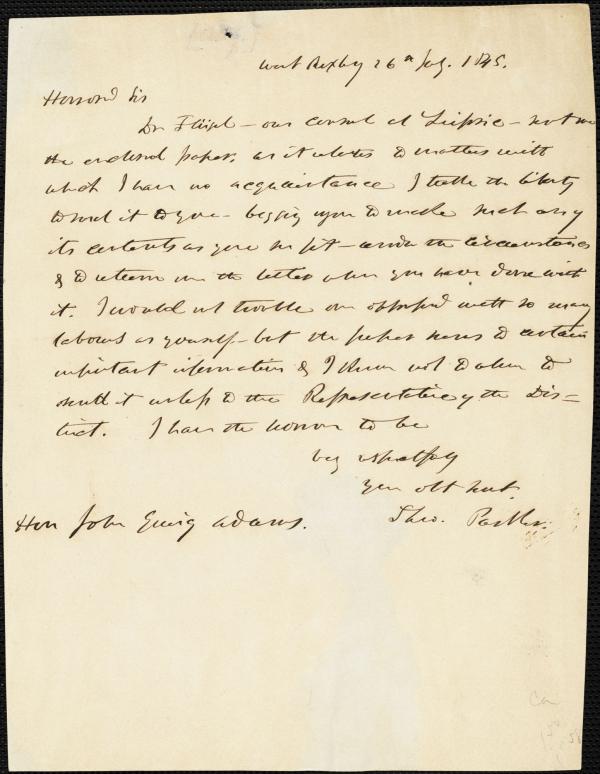 West Roxby 26th July. 1845.
Honored Sir
Dr Flügel — our consul at Leipsic — sent me
the enclosed paper. as it relates to matters with
which I have no acquaintance I take the liberty
to send it to you — begging you to make such use of
its contents as you see fit — under the circumstances
& to return me the letter when you have done with
it. I would not trouble one oppressed with so many
labours as yourself — but the paper seems to contain
important information & I know not to whom to
send it unless to the Representative of the Dis=
trict. I have the honor to be
very respectfully
your obt servt.
Theo. Parker.
Hon John Quincy Adams.